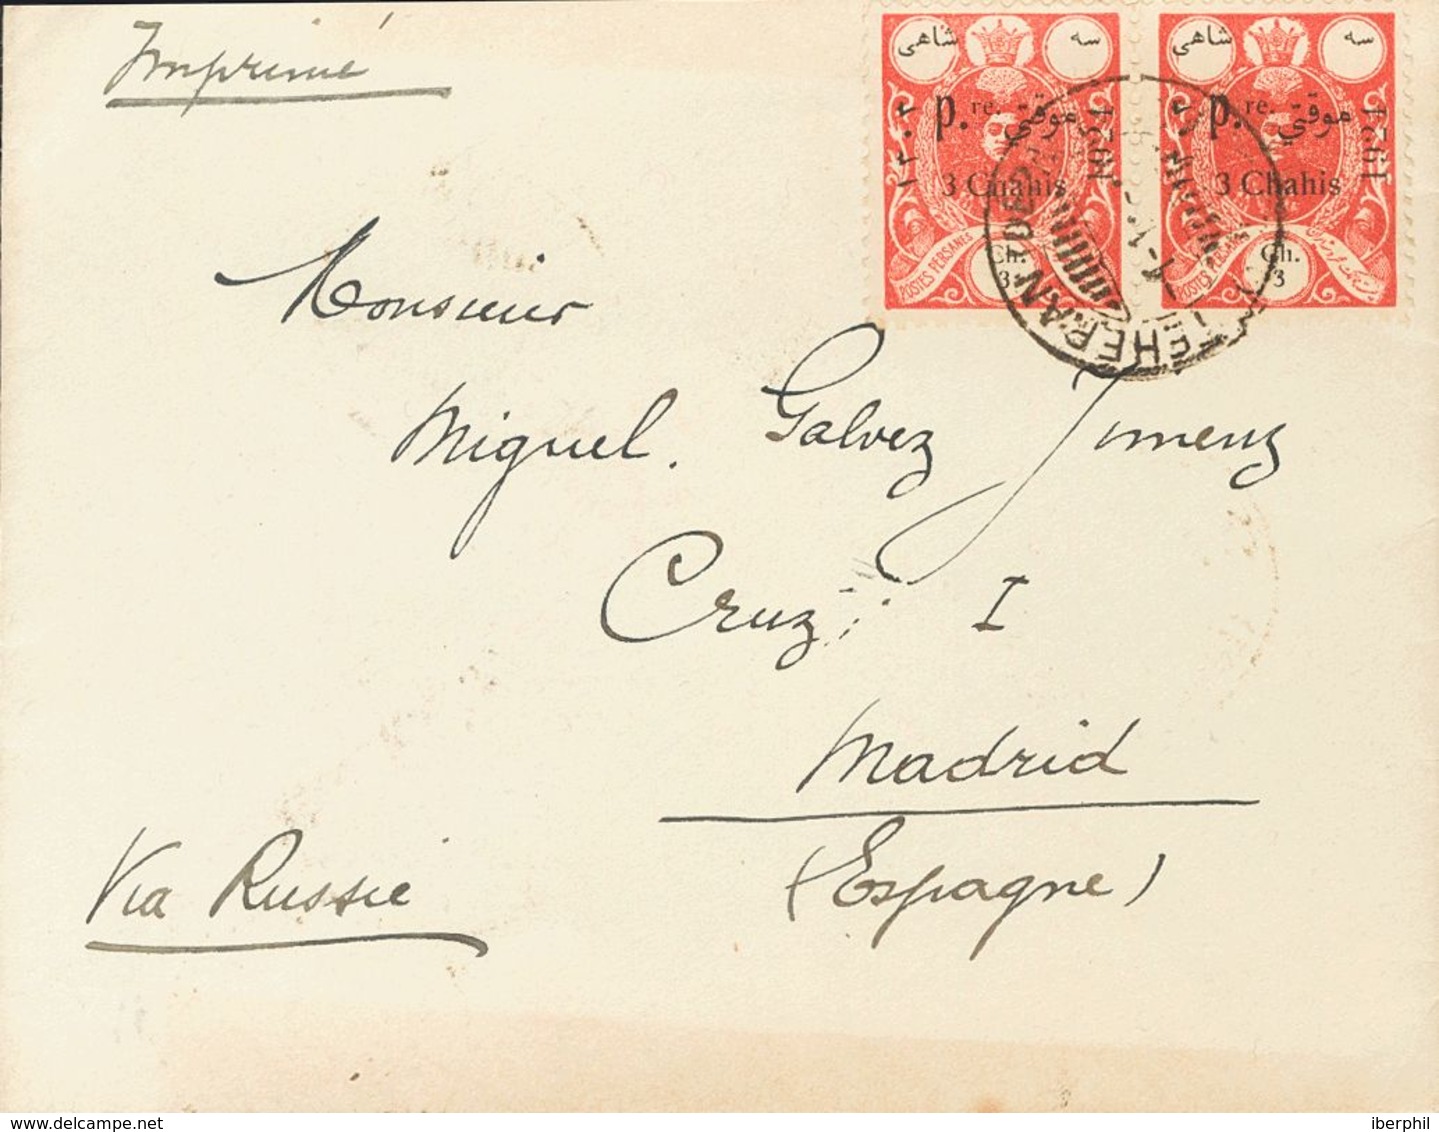 Imprimé
شاهی سه شاهی سه
p.re. موقتی p.re. موقتی
۱۳۰۲ 1924 1924
3 Chahis 3 Chahis
POSTES PERSANES
Ch.
3
Ch.
3
TEHERAN
Monsieur
Miguel. Galvez Jimenz
Cruz, I
Madrid
(Espagne)
Via Russie
delcampe.net
iberphil